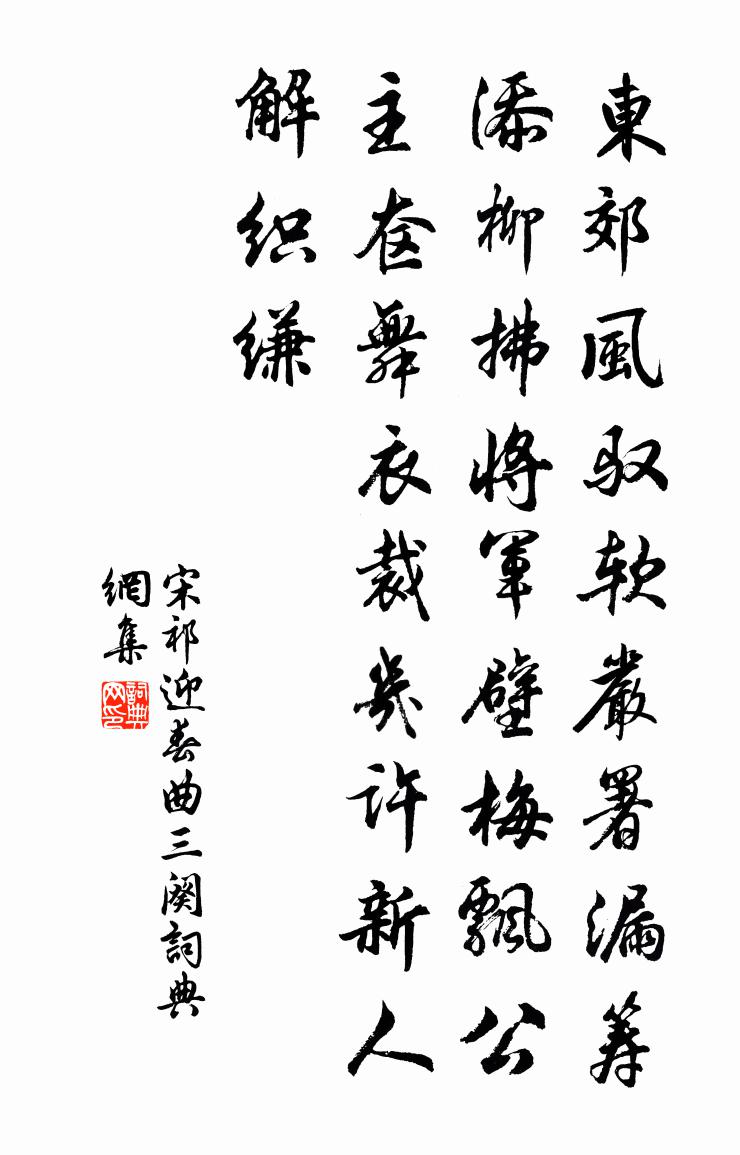 東郊風馭软嚴署漏筹
添柳拂將軍壁梅飄公
主奁舞衣裁幾許新人
解织縑
宋祁迎春曲三闋詞典
網集
詞典网印